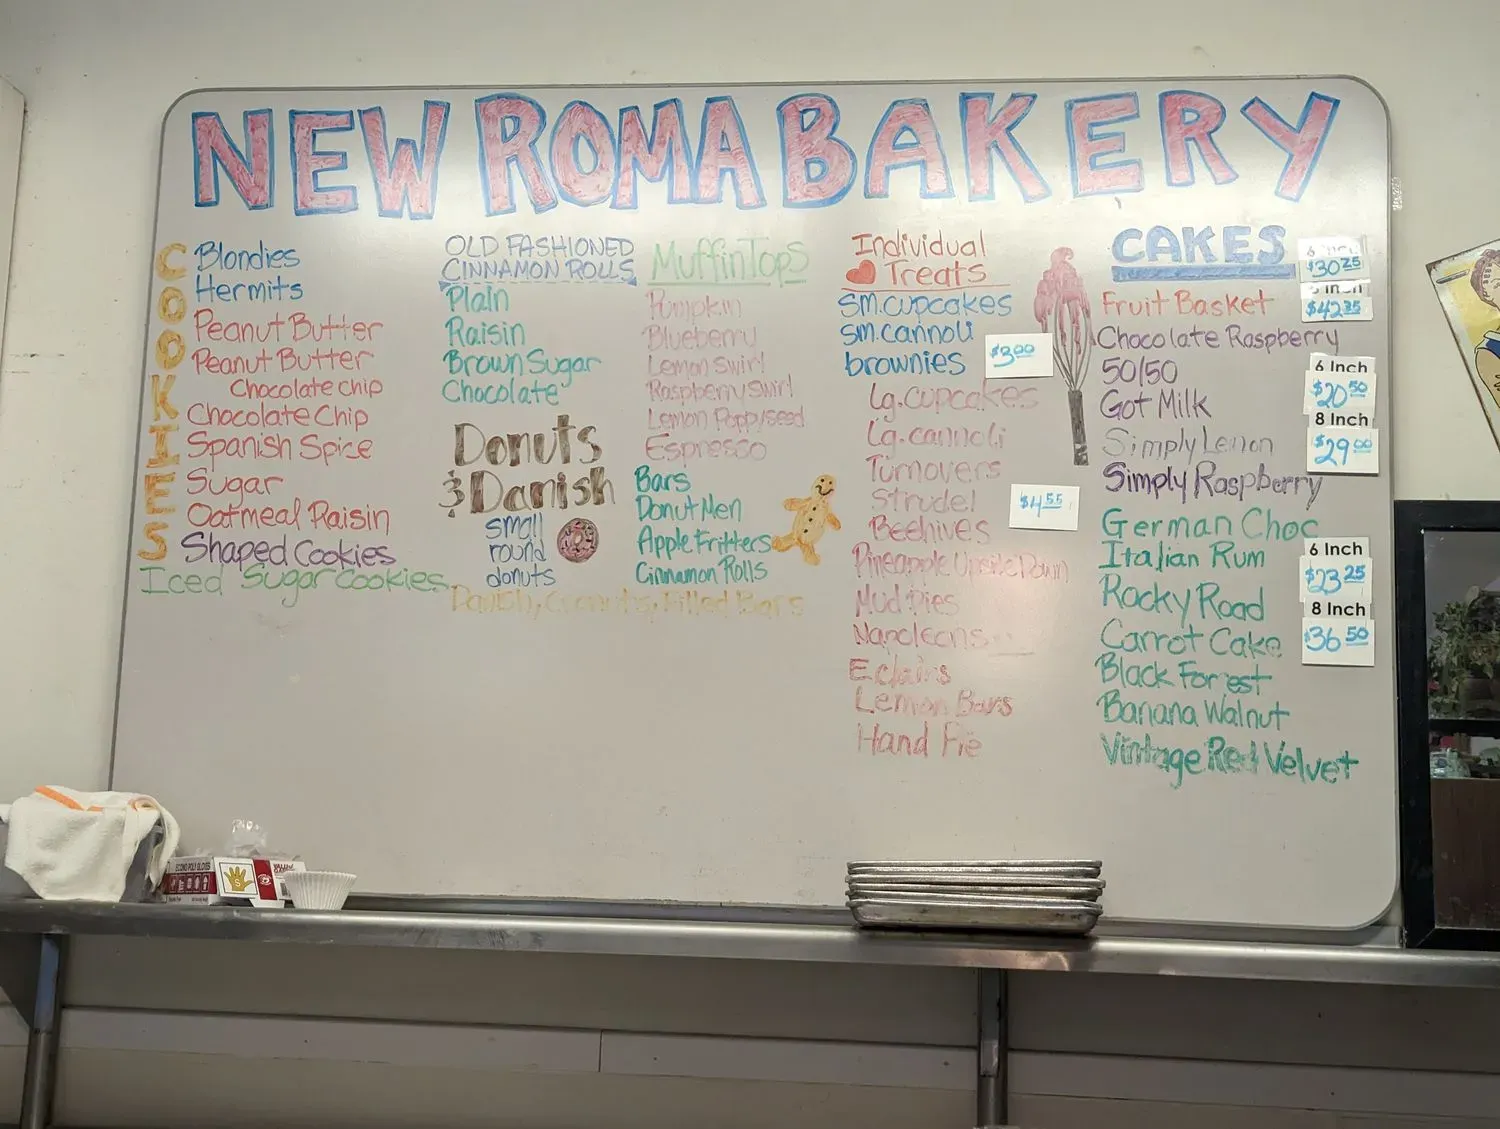 NEW ROMA BAKERY
COOKIES
Blondies
Hermits
Peanut Butter
Peanut Butter
Chocolate Chip
Chocolate Chip
Spanish Spice
Sugar
Oatmeal Raisin
Shaped Cookies
Iced Sugar Cookies
OLD FASHIONED
CINNAMON ROLLS
Plain
Raisin
Brown Sugar
Chocolate
Donuts
& Danish
small
round
donuts
Muffin Tops
Pumpkin
Blueberry
Lemon Swirl
Raspberry Swirl
Lemon Poppyseed
Espresso
Bars
Donut Men
Apple Fritters
Cinnamon Rolls
Danish, Cronuts, Filled Bars
Individual
Treats
Sm. cupcakes
Sm. cannoli
brownies
$3.00
Lg. cupcakes
Lg. cannoli
Turnovers
Strudel
$4.55
Beehives
Pineapple Upside Down
Mud Pies
Napoleons
Eclairs
Lemon Bars
Hand Pie
CAKES
6 Inch
$30.25
$42.25
Fruit Basket
Chocolate Raspberry
50/50
Got Milk
Simply Lemon
Simply Raspberry
6 Inch
$20.50
8 Inch
$29.00
German Choc
Italian Rum
Rocky Road
Carrot Cake
Black Forest
Banana Walnut
Vintage Red Velvet
6 Inch
$23.25
8 Inch
$36.50